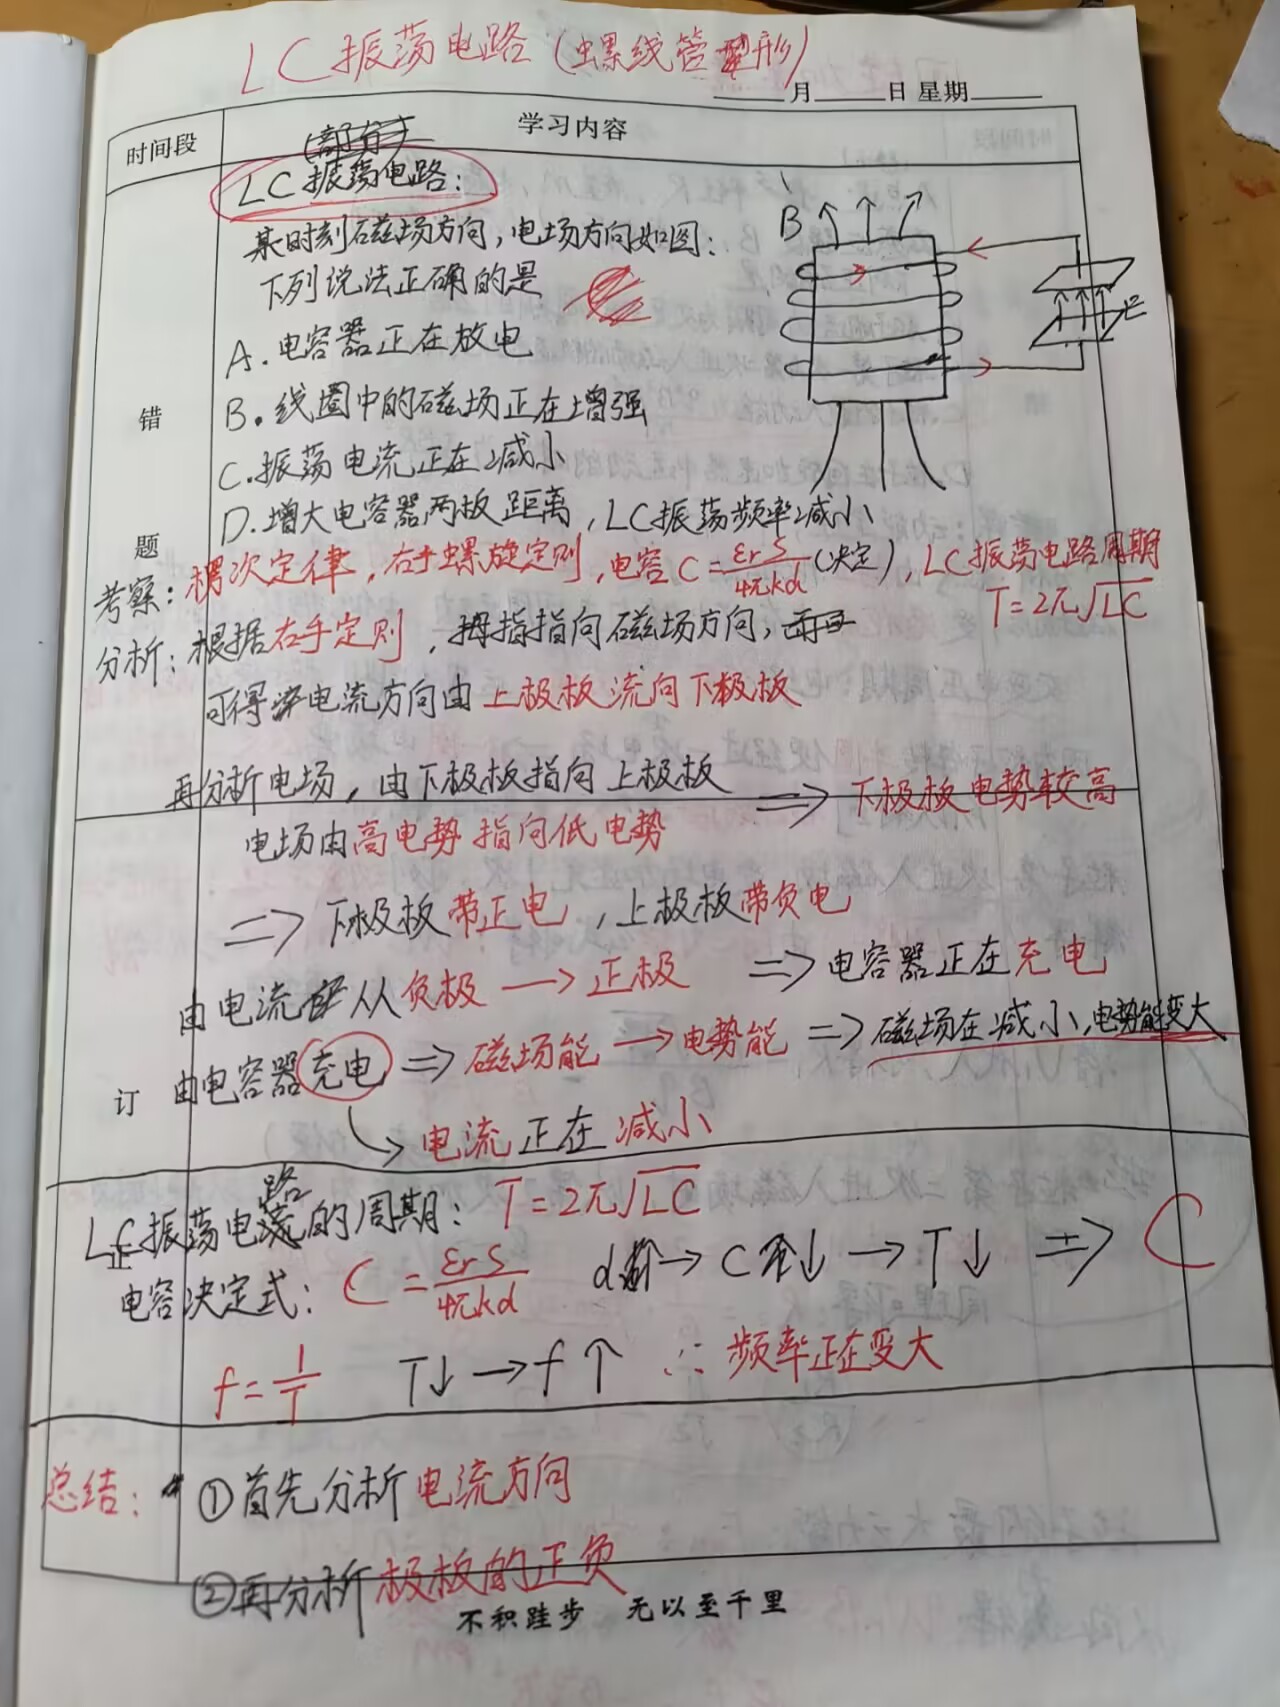 LC振荡电路（螺线管型形）
___月___日 星期___
时间段
学习内容
（部分）
LC振荡电路：
某时刻磁场方向，电场方向如图：
下列说法正确的是
A.电容器正在放电
B.线圈中的磁场正在增强
C.振荡电流正在减小
D.增大电容器两板距离，LC振荡频率减小
B
E
错
题
订
正
考察：楞次定律，右手螺旋定则，电容C=εrS/4πkd（决定），LC振荡电路周期
T=2π√LC
分析：根据右手定则，拇指指向磁场方向，
可得 电流方向由上极板流向下极板
再分析电场，由下极板指向上极板
电场由高电势指向低电势
=> 下极板电势较高
=> 下极板带正电，上极板带负电
由电流 从负极→正极 => 电容器正在充电
由电容器充电 => 磁场能→电势能 => 磁场在减小，电势能变大
↘电流正在减小
LC振荡电路的周期：T=2π√LC
电容决定式：C=εrS/4πkd d↑→C↓→T↓ => C
f=1/T T↓→f↑ ∴频率正在变大
总结：①首先分析电流方向
②再分析极板的正负
不积跬步 无以至千里